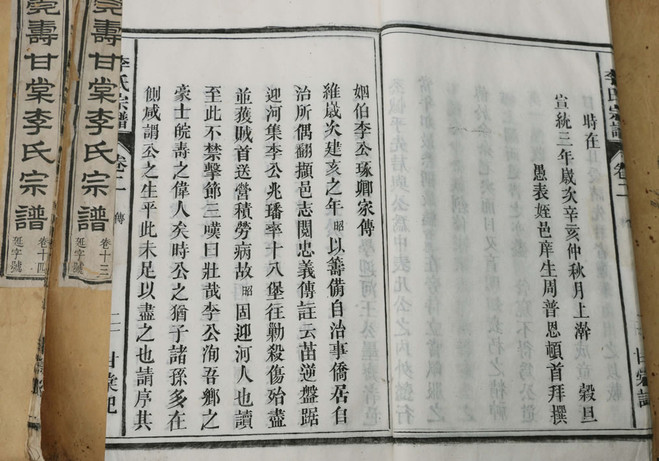 時在
宣統三年歲次辛亥仲秋月上澣 穀旦
愚表姪邑庠生周普恩頓首拜撰
姻伯李公琢卿家傳
維歲次建亥之年昭以籌備自治事僑居自
治所偶翻擷邑志閱忠義傳註云苗逆盤踞
迎河集李公兆璠率十八堡往勦殺傷殆盡
並獲賊首送營積勞病故昭固迎河人也讀
至此不禁擊節三嘆曰壯哉李公洵吾鄉之
豪士皖壽之偉人矣時公之猶子諸孫多在
咸謂公之生平此未足以盡之也請序其
李氏宗譜 卷二 傳 二 甘棠記
壽甘棠李氏宗譜
卷十三
延字號
壽甘棠李氏宗譜
卷十四
延字號